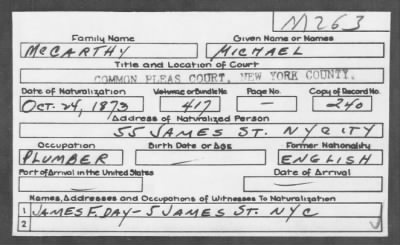 M263
Family Name Given Name or Names
McCARTHY MICHAEL
Title and Location of Court
COMMON PLEAS COURT, NEW YORK COUNTY.
Date of Naturalization Volume or Bundle No. Page No. Copy of Record No.
OCT. 24, 1873 417 — 240
Address of Naturalized Person
55 JAMES ST. NYCITY
Occupation Birth Date or Age Former Nationality
PLUMBER ENGLISH
Port of Arrival in the United States Date of Arrival
Names, Addresses and Occupations of Witnesses To Naturalization
1 JAMES F. DAY – 5 JAMES ST. NYC
2